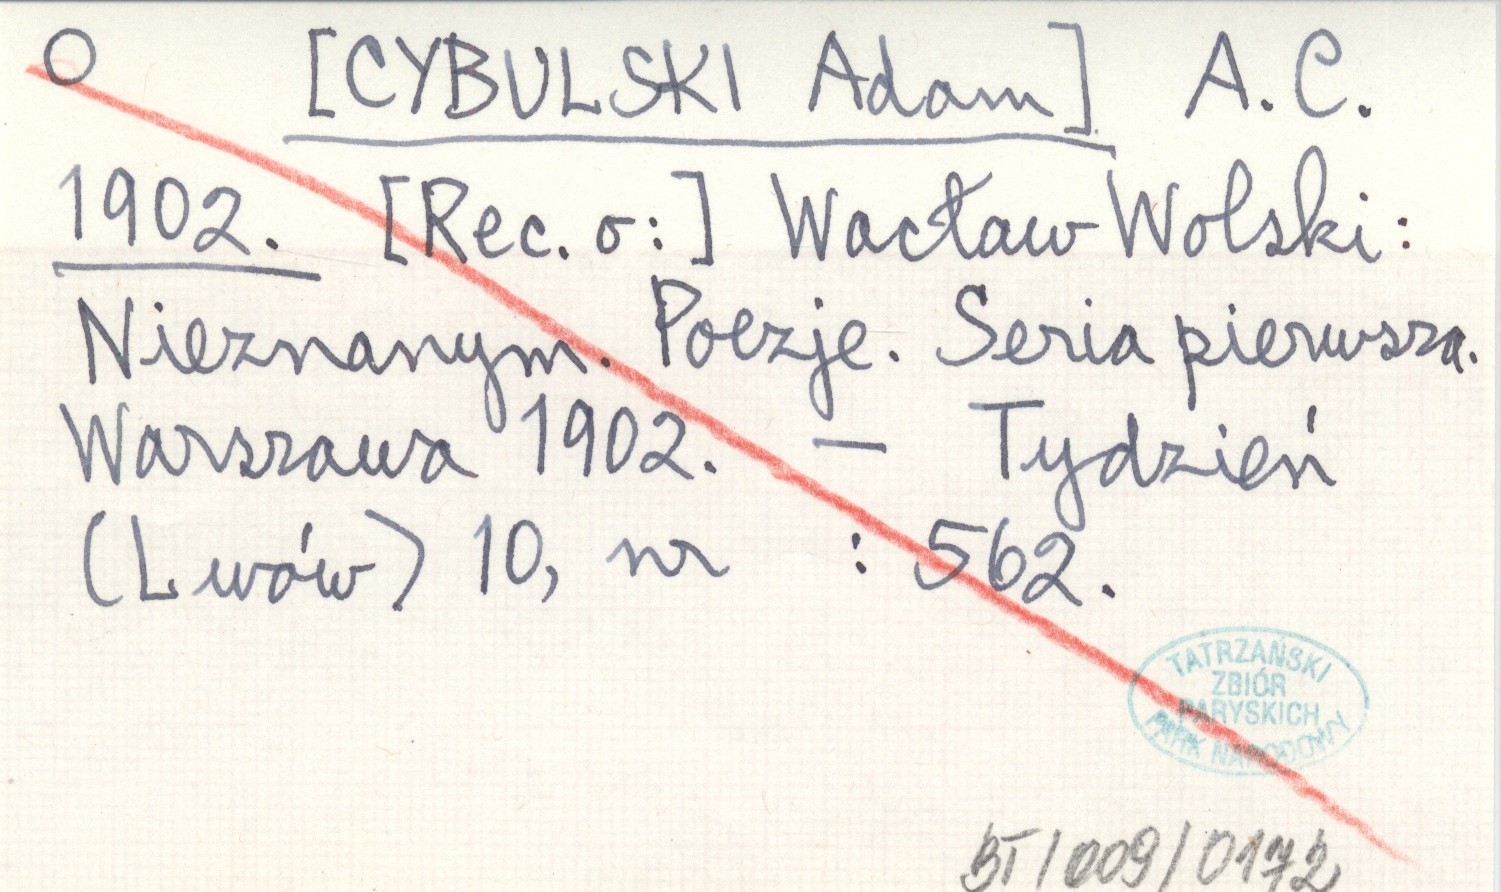 O [CYBULSKI Adam] A. C.
1902. [Rec. o:] Wacław Wolski:
Nieznanym. Poezje. Seria pierwsza.
Warszawa 1902. — Tydzień
(Lwów) 10, nr : 562.
TATRZAŃSKI
ZBIÓR
PARYSKICH
PARK NARODOWY
BT/009/0172